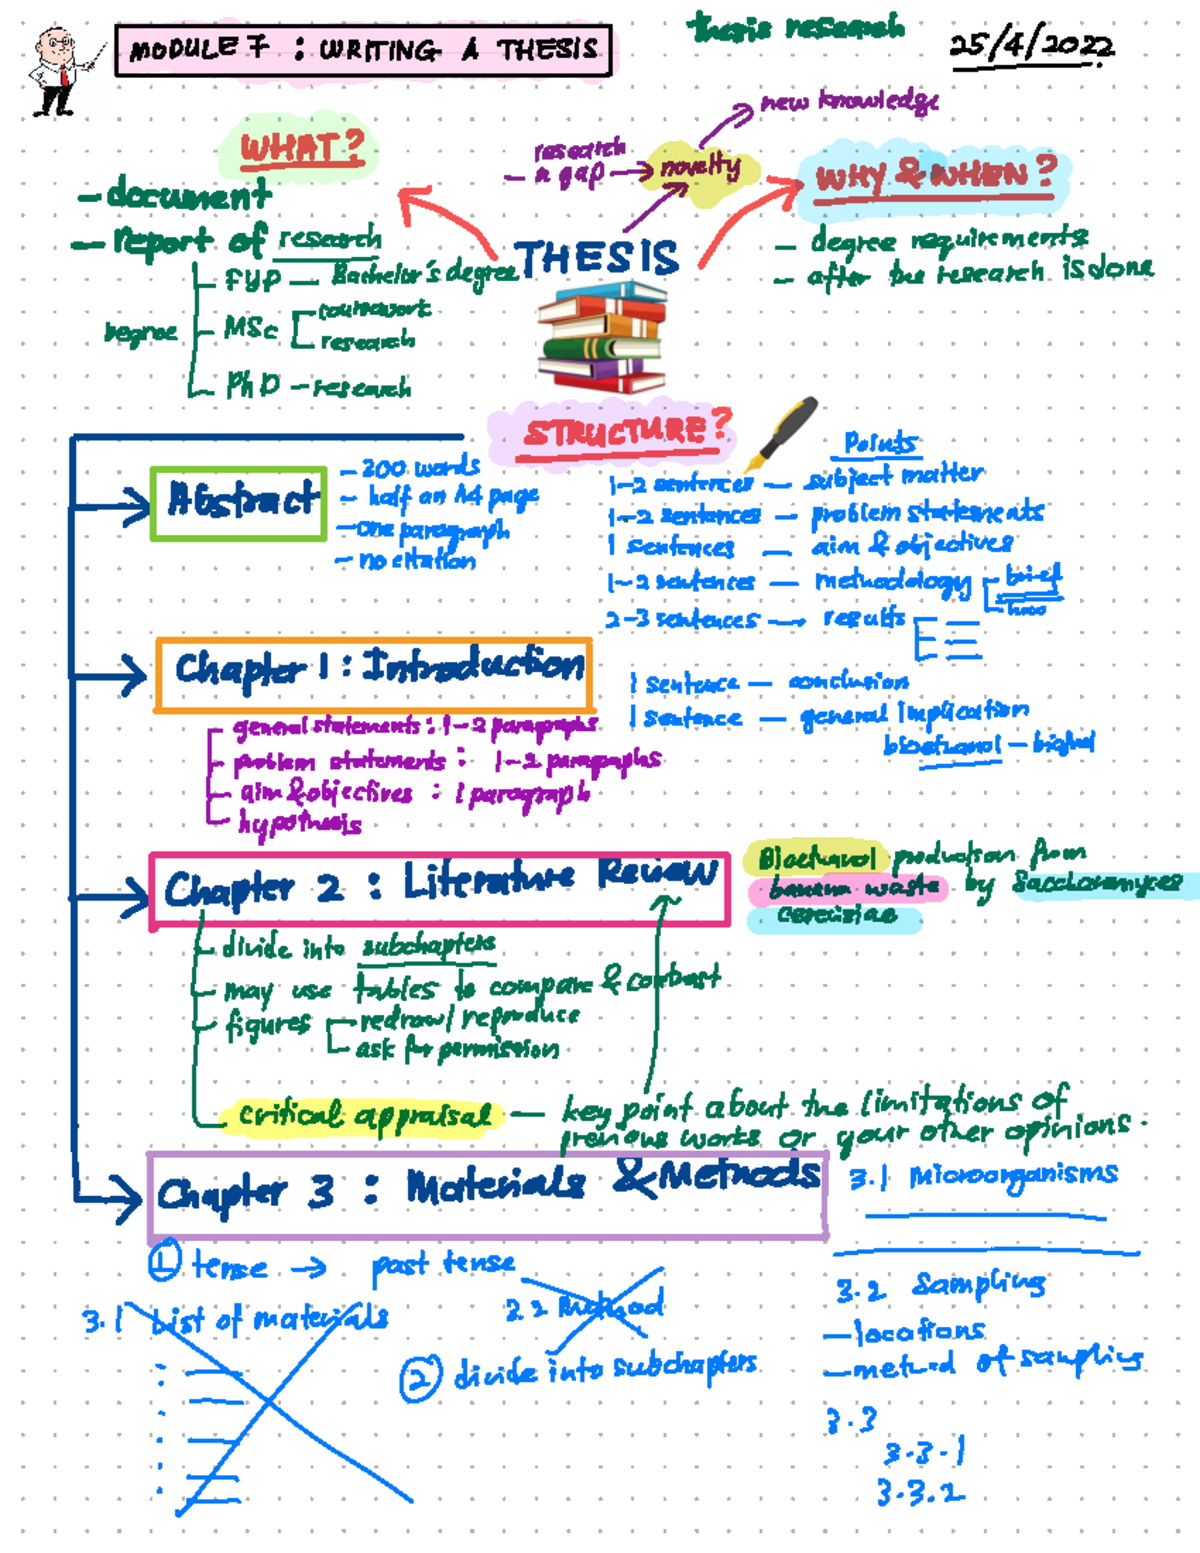 thesis research
MODULE 7 : WRITING A THESIS
25/4/2022
new knowledge
research
- a gap → novelty
WHAT?
WHY & WHEN?
- document
- report of research
- degree requirements
- after the research is done
THESIS
Degree
FYP - Bachelor's degree
MSc
coursework
research
PhD - research
STRUCTURE?
Abstract
- 200 words
- half an A4 page
- one paragraph
- no citation
Points
1-2 sentences - subject matter
1-2 sentences - problem statements
1 sentences - aim & objectives
1-2 sentences - methodology
brief
2-3 sentences → results
1 sentence - conclusion
1 sentence - general implication
bioethanol - biofuel
Chapter 1 : Introduction
general statements : 1-2 paragraphs
problem statements : 1-2 paragraphs
aim & objectives : 1 paragraph
hypothesis
Chapter 2 : Literature Review
Bioethanol production from
banana waste by Saccharomyces
cerevisiae
divide into subchapters
may use tables to compare & contrast
figures
redraw / reproduce
ask for permission
critical appraisal - key point about the limitations of
previous works or your other opinions.
Chapter 3 : Materials & Methods
3.1 Microorganisms
① tense → past tense
3.1 List of materials
② divide into subchapters
3.2 Sampling
- locations
- method of sampling
3.3
3.3.1
3.3.2